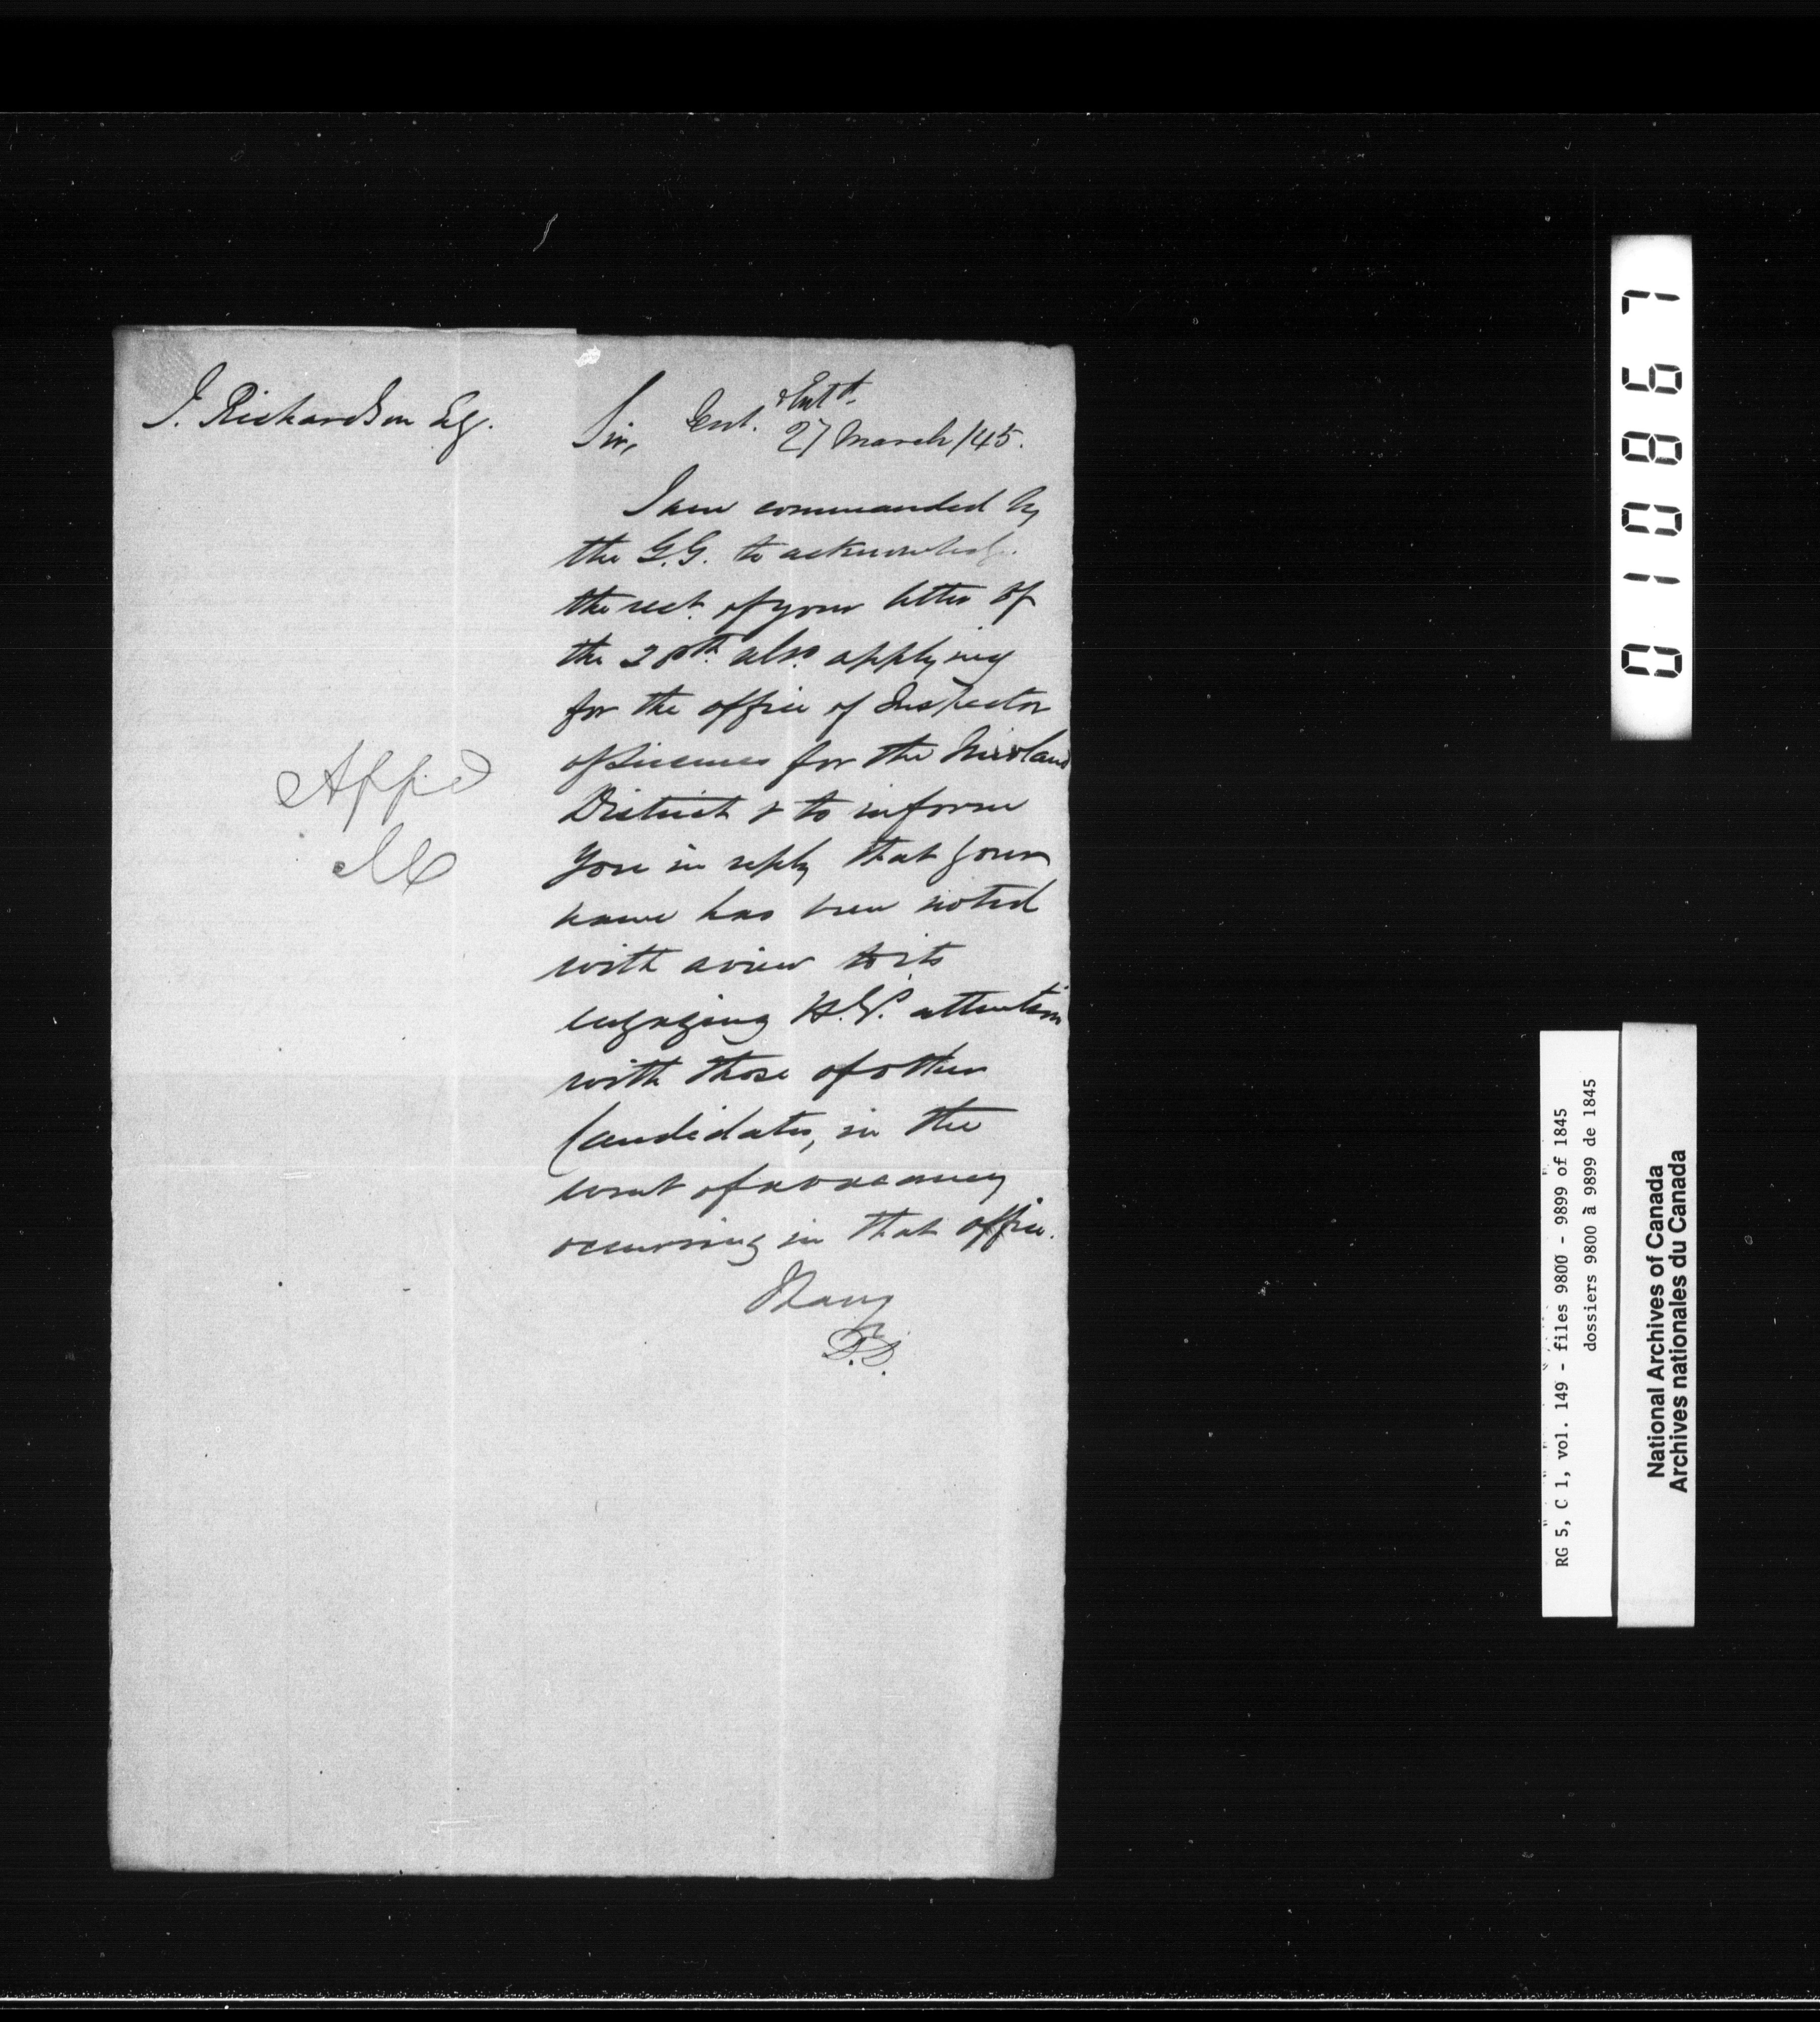 J. Richardson Esq.
Entd.
Sir,
27 March /45.
I am commanded by
the G.G. to acknowledge
the rect. of your letter of
the 20th. applying
for the office of Inspector
of Licenses for the Midland
District & to inform
you in reply that your
name has been noted
with a view to its
engaging H.E's. attention
with those of other
Candidates, in the
event of a vacancy
occurring in that office.
I have
Appd
010867
RG 5, C 1, vol. 149 - files 9800 - 9899 of 1845
dossiers 9800 à 9899 de 1845
National Archives of Canada
Archives nationales du Canada